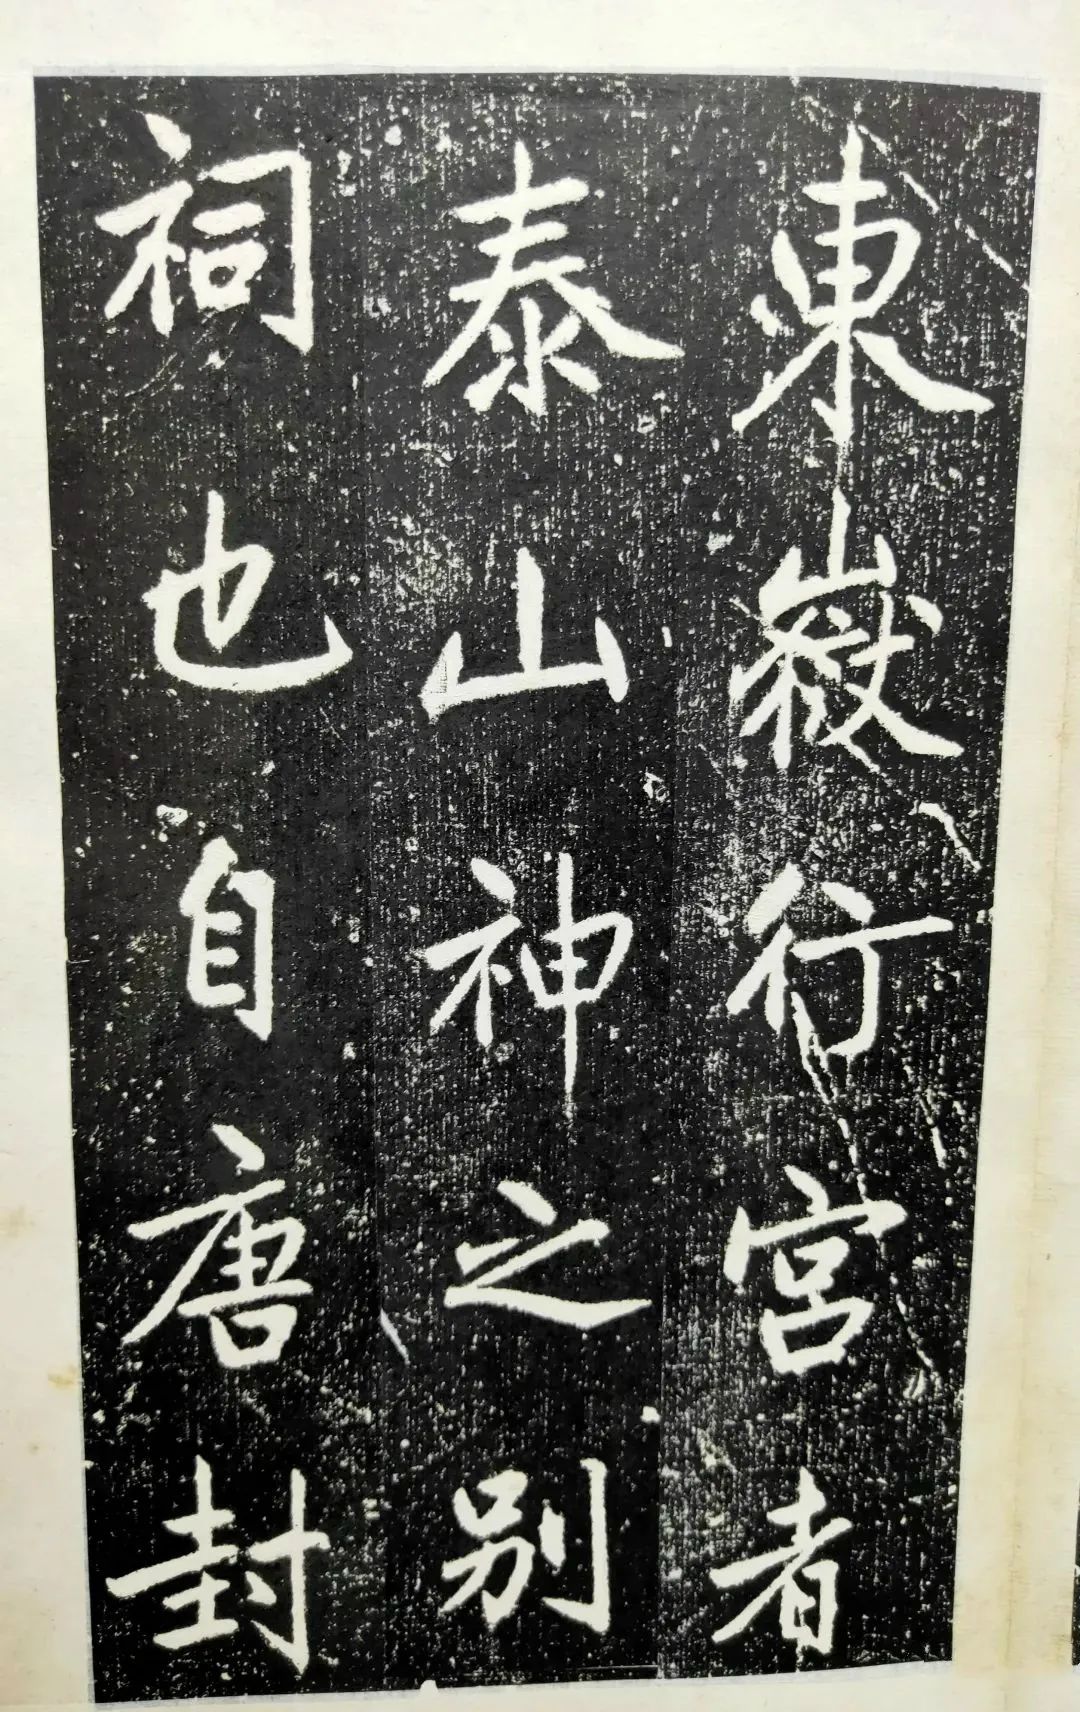 東嶽行宮者
泰山神之別
祠也自唐封